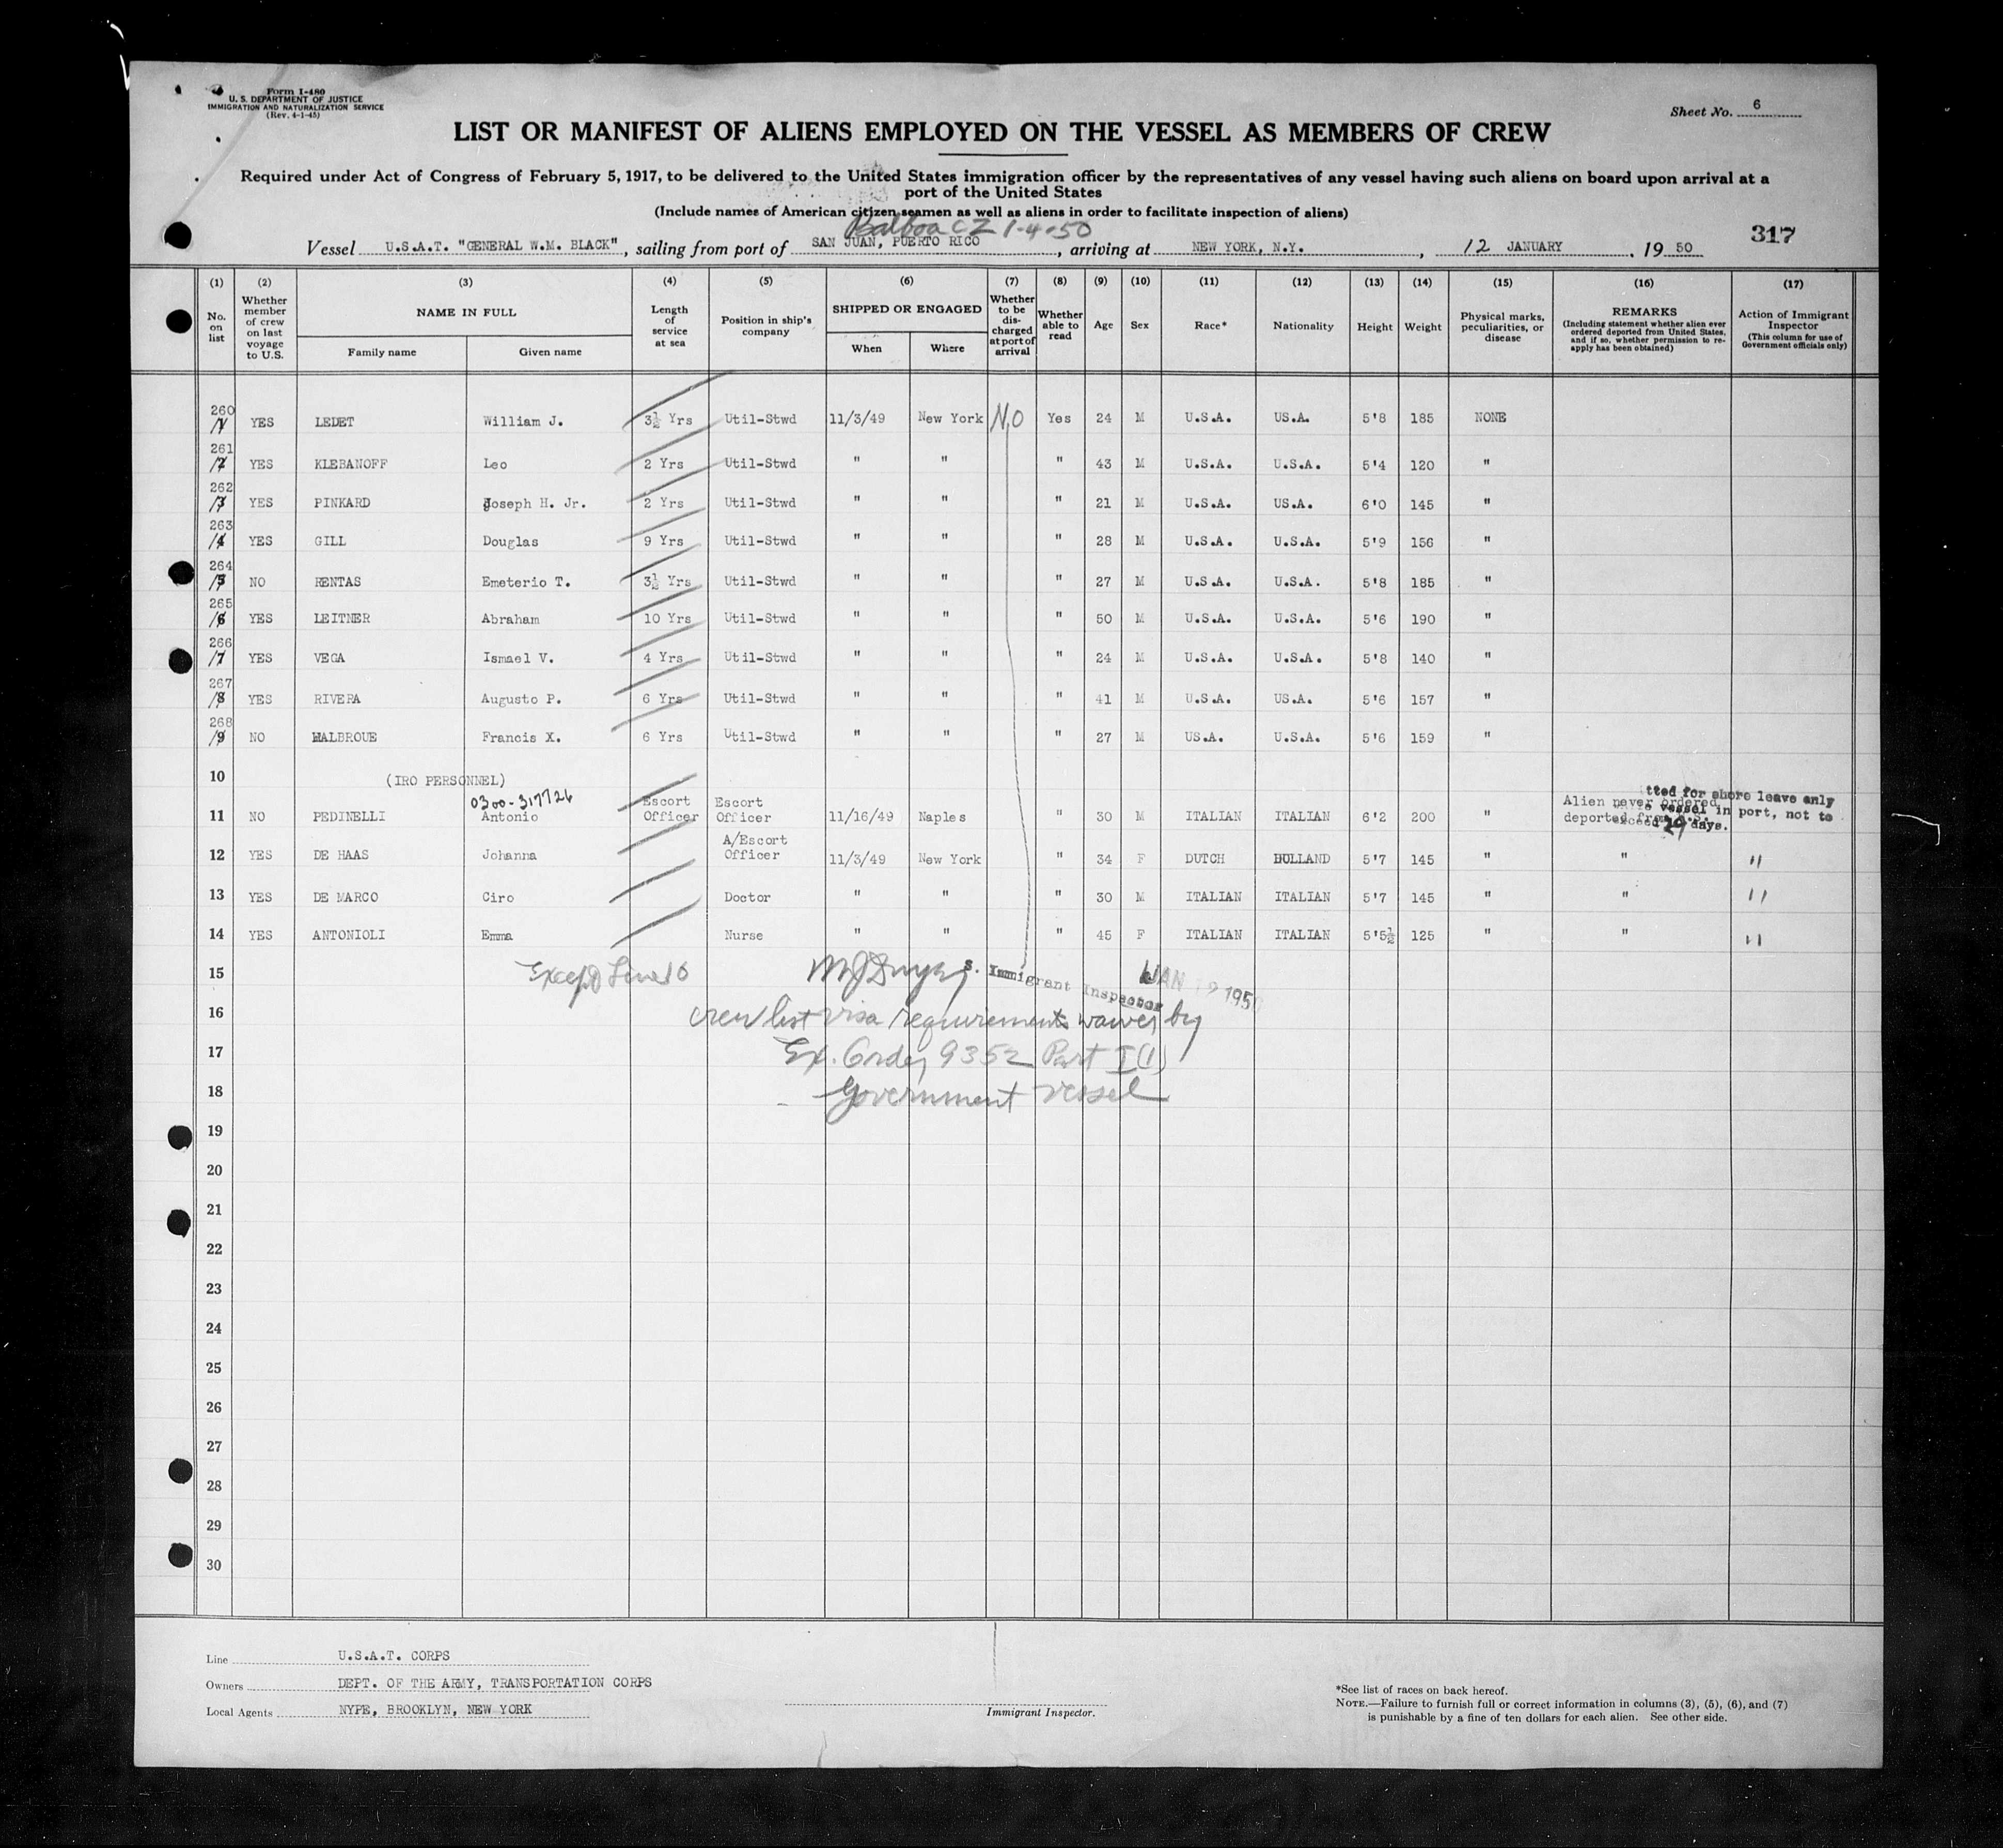 Form I-480
U. S. DEPARTMENT OF JUSTICE
IMMIGRATION AND NATURALIZATION SERVICE
(Rev. 4-1-45)
Sheet No. 6
LIST OR MANIFEST OF ALIENS EMPLOYED ON THE VESSEL AS MEMBERS OF CREW
Required under Act of Congress of February 5, 1917, to be delivered to the United States immigration officer by the representatives of any vessel having such aliens on board upon arrival at a
port of the United States
(Include names of American citizen seamen as well as aliens in order to facilitate inspection of aliens)
Balboa CZ 1-4-50
317
Vessel U.S.A.T. "GENERAL W.M. BLACK", sailing from port of SAN JUAN, PUERTO RICO, arriving at NEW YORK, N.Y., 12 JANUARY, 19 50
(1) No. on list
(2) Whether member of crew on last voyage to U.S.
(3) NAME IN FULL Family name Given name
(4) Length of service at sea
(5) Position in ship's company
(6) SHIPPED OR ENGAGED When Where
(7) Whether to be discharged at port of arrival
(8) Whether able to read
(9) Age
(10) Sex
(11) Race*
(12) Nationality
(13) Height
(14) Weight
(15) Physical marks, peculiarities, or disease
(16) REMARKS (Including statement whether alien ever ordered deported from United States, and if so, whether permission to re-apply has been obtained)
(17) Action of Immigrant Inspector (This column for use of Government officials only)
260 1 YES LEDET William J. 3½ Yrs Util-Stwd 11/3/49 New York No Yes 24 M U.S.A. US.A. 5'8 185 NONE
261 2 YES KLEBANOFF Leo 2 Yrs Util-Stwd " " " 43 M U.S.A. U.S.A. 5'4 120 "
262 3 YES PINKARD Joseph H. Jr. 2 Yrs Util-Stwd " " " 21 M U.S.A. US.A. 6'0 145 "
263 4 YES GILL Douglas 9 Yrs Util-Stwd " " " 28 M U.S.A. U.S.A. 5'9 156 "
264 5 NO RENTAS Emeterio T. 3½ Yrs Util-Stwd " " " 27 M U.S.A. U.S.A. 5'8 185 "
265 6 YES LEITNER Abraham 10 Yrs Util-Stwd " " " 50 M U.S.A. U.S.A. 5'6 190 "
266 7 YES VEGA Ismael V. 4 Yrs Util-Stwd " " " 24 M U.S.A. U.S.A. 5'8 140 "
267 8 YES RIVERA Augusto P. 6 Yrs Util-Stwd " " " 41 M U.S.A. US.A. 5'6 157 "
268 9 NO HALBROUE Francis X. 6 Yrs Util-Stwd " " " 27 M US.A. U.S.A. 5'6 159 "
10 (IRO PERSONNEL)
0300-317726
11 NO PEDINELLI Antonio Escort Officer Escort Officer 11/16/49 Naples " 30 M ITALIAN ITALIAN 6'2 200 " Alien never ordered deported from U.S.
tted for shore leave only
vessel in port, not to
exceed 29 days.
12 YES DE HAAS Johanna A/Escort Officer 11/3/49 New York " 34 F DUTCH HOLLAND 5'7 145 " " "
13 YES DE MARCO Ciro Doctor " " " 30 M ITALIAN ITALIAN 5'7 145 " " "
14 YES ANTONIOLI Emma Nurse " " " 45 F ITALIAN ITALIAN 5'5½ 125 " " "
15 Except Line 10 S. Immigrant Inspector JAN 12 1950
16 crew list visa requirements waived by
17 Ex. Order 9352 Part I (1)
18 Government vessel
19
20
21
22
23
24
25
26
27
28
29
30
Line U.S.A.T. CORPS
Owners DEPT. OF THE ARMY, TRANSPORTATION CORPS
Local Agents NYPE, BROOKLYN, NEW YORK
Immigrant Inspector.
*See list of races on back hereof.
NOTE.—Failure to furnish full or correct information in columns (3), (5), (6), and (7)
is punishable by a fine of ten dollars for each alien. See other side.